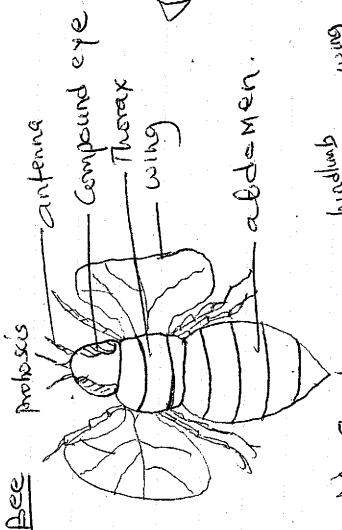 Bee
proboscis
antenna
Compound eye
Thorax
wing
abdomen.
hindlimb
wing